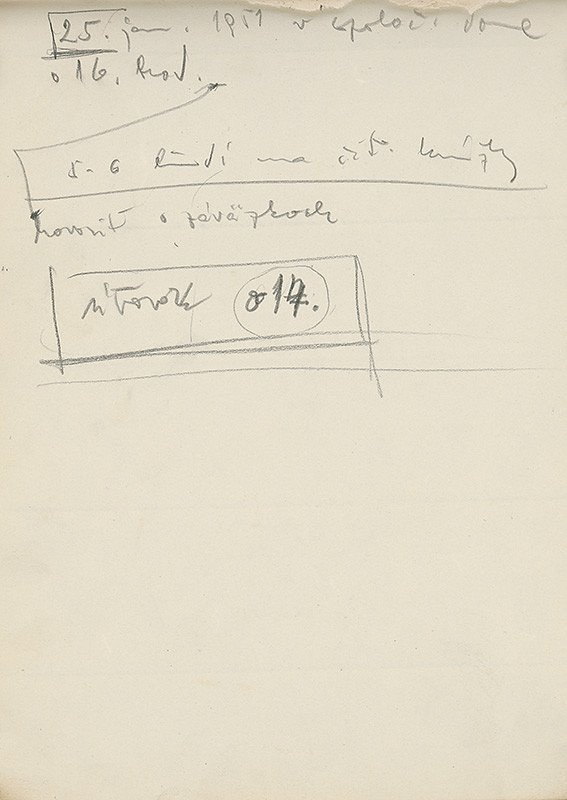 25. jan. 1951 v spoloč. dome
o 16. hod.
5-6 ľudí na čít. knižky
hovoriť o záväzkoch
utorok o 14.